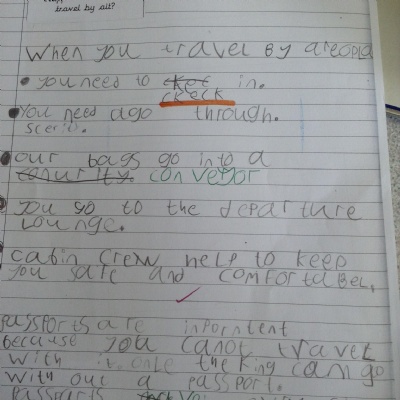 travel by air?
When you travel By areopla
• you need to in.
creck
• You need ago through.
scerit.
• our bags go into a
conveyor
you go to the departure
Lounge.
cabin crew help to keep
you safe and comfortabel.
passports are inporntent
because you canot travel
with it. onle the king can go
with out a passport.
passports